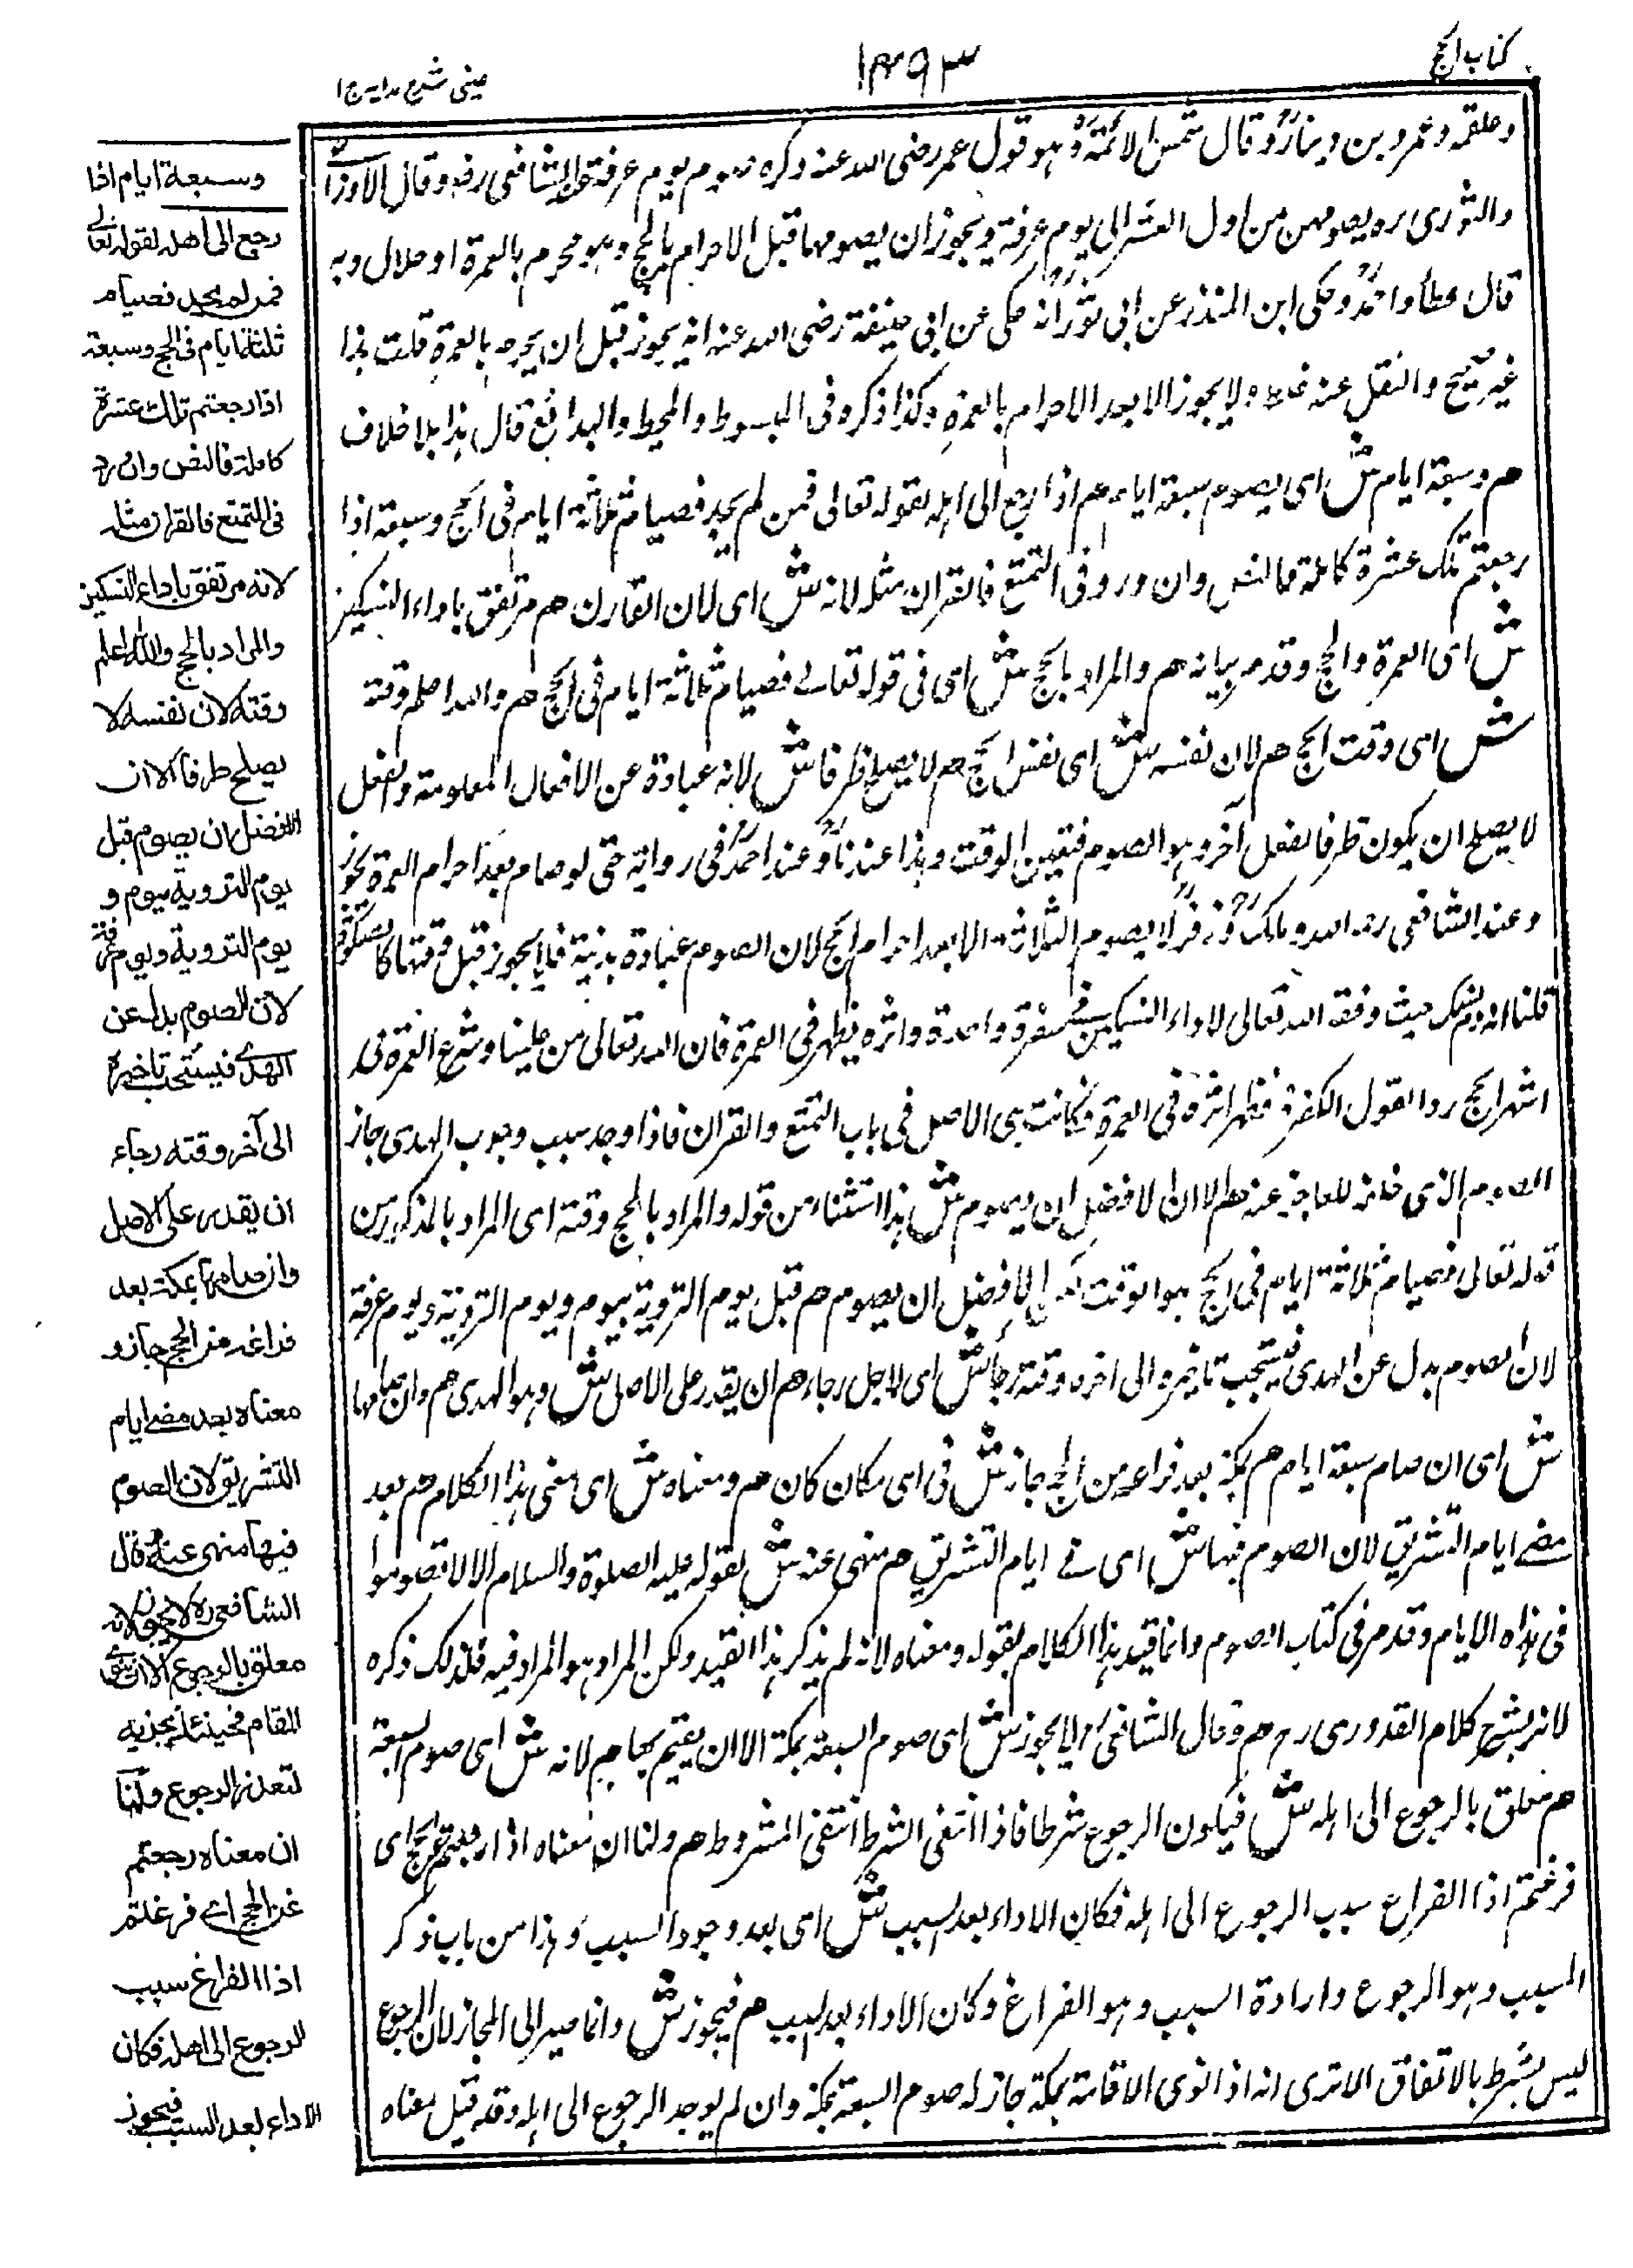 كتاب الحج
١٤٩٣
عینی شرح هدایه ج ١
وعلقمه وعمرو بن دينارؒ وقال شمس الائمةؒ وهو قول عمر رضى الله عنه وكره صوم يوم عرفة عند الشافعى رفه وقال الاوزاعى
والثورى ره يصومهن من اول العشر الى يوم عرفة ويجوز ان يصومها قبل الاحرام بالحج وهو محرم بالعمرة او حلال وبه
قال عطاء واحمدؒ وحكى ابن المنذر عن ابى ثورؒ انه حكى عن ابى حنيفة رضى الله عنه انه يجوز قبل ان يحرم بالعمرة قلت هذا
غير صحيح والنقل عنه غلط ولا يجوز الا بعد الاحرام بالعمرة وكذا ذكره فى المبسوط والمحيط والبدائع قال هذا بلا خلاف
هم وسبعة ايام ش اى يصوم سبعة ايام هم اذا رجع الى اهله لقوله تعالى فمن لم يجد فصيام ثلاثة ايام فى الحج وسبعة اذا
رجعتم تلك عشرة كاملة فالنص وان ورد فى التمتع فالقران مثله لانه ش اى لان القارن هم مرتفق باداء النسكين
ش اى العمرة والحج وقد مر بيانه هم والمراد بالحج ش اى فى قوله تعالى فصيام ثلاثة ايام فى الحج هم والله اعلم وقته
ش اى وقت الحج هم لان نفسه ش اى نفس الحج هم لا يصلح ظرفا ش لانه عبادة عن الافعال المعلومة والفعل
لا يصلح ان يكون ظرفا لفعل آخر وهو الصوم فتعين الوقت وهذا عندناؒ وعند احمدؒ فى رواية حتى لو صام بعد احرام العمرة يجوز
وعند الشافعى رحمه الله ومالكؒ وزفرؒ لا يصوم الثلاثة الا بعد احرام الحج لان الصوم عبادة بدنية فلا يجوز قبل وقتها كالصلوة
قلنا انه نسك حيث وفقه الله تعالى لاداء النسكين فى سفرة واحدة واثره يظهر فى العمرة فان الله تعالى من علينا وشرع العمرة فى
اشهر الحج ردا لقول الكفرة فظهر اثره فى العمرة فكانت هى الاصل فى باب التمتع والقران فاذا وجد سبب وجوب الهدى جاز
الصوم الذى خلفه للعاجز عنه هم الا ان الافضل ان يصوم ش هذا استثناء من قوله والمراد بالحج وقته اى المراد بالمذكور من
قوله تعالى فصيام ثلاثة ايام فى الحج هو الوقت لكن الافضل ان يصوم هم قبل يوم التروية بيوم ويوم التروية ويوم عرفة
لان الصوم بدل عن الهدى فيستحب تاخيره الى اخره وقته رجاء ش اى لاجل رجاء هم ان يقدر على الاصل ش وهو الهدى هم وان صامها
ش اى ان صام سبعة ايام هم بمكة بعد فراغه من الحج جاز ش فى اى مكان كان هم ومعناه ش اى معنى هذا الكلام هم بعد
مضى ايام التشريق لان الصوم فيها ش اى فى ايام التشريق هم منهى عنه ش لقوله عليه الصلوة والسلام الا لا تصوموا
فى هذه الايام وقد مر فى كتاب الصوم وانما قيد هذا الكلام بقوله ومعناه لانه لم يذكر هذا القيد ولكن المراد هو المراد فيه فلذلك ذكره
لانه يشرح كلام القدورى ره هم وقال الشافعىؒ لا يجوز ش اى صوم السبعة بمكة الا ان يقيم بها هم لانه ش اى صوم السبعة
هم معلق بالرجوع الى اهله ش فيكون الرجوع شرطا فاذا انتفى الشرط انتفى المشروط هم ولنا ان معناه اذا رجعتم عن الحج اى
فرغتم اذا الفراغ سبب الرجوع الى اهله فكان الاداء بعد السبب ش اى بعد وجود السبب وهذا من باب ذكر
السبب وهو الرجوع وارادة السبب وهو الفراغ وكان الاداء بعد السبب هم فيجوز ش وانما صير الى المجاز لان الرجوع
ليس بشرط بالاتفاق الا ترى انه اذا نوى الاقامة بمكة جاز له صوم السبعة بمكة وان لم يوجد الرجوع الى اهله وقد قيل معناه
وسبعة ايام اذا
رجع الى اهله لقوله تعالى
فمن لم يجد فصيام
ثلثة ايام فى الحج وسبعة
اذا رجعتم تلك عشرة
كاملة فالنص وان ورد
فى التمتع فالقران مثله
لانه مرتفق باداء النسكين
والمراد بالحج والله اعلم
وقته لان نفسه لا
يصلح ظرفا الا ان
الافضل ان يصوم قبل
يوم التروية بيوم و
يوم التروية ويوم عرفة
لان الصوم بدل عن
الهدى فيستحب تاخيره
الى آخر وقته رجاء
ان يقدر على الاصل
وان صامها بمكة بعد
فراغه من الحج جاز و
معناه بعد مضى ايام
التشريق لان الصوم
فيها منهى عنه وقال
الشافعى ره لا يجوز لانه
معلق بالرجوع الا ان ينوى
المقام فحينئذ يجزيه
لتعذر الرجوع ولنا
ان معناه رجعتم
عن الحج اى فرغتم
اذا الفراغ سبب
الرجوع الى اهله فكان
الاداء بعد السبب فيجوز